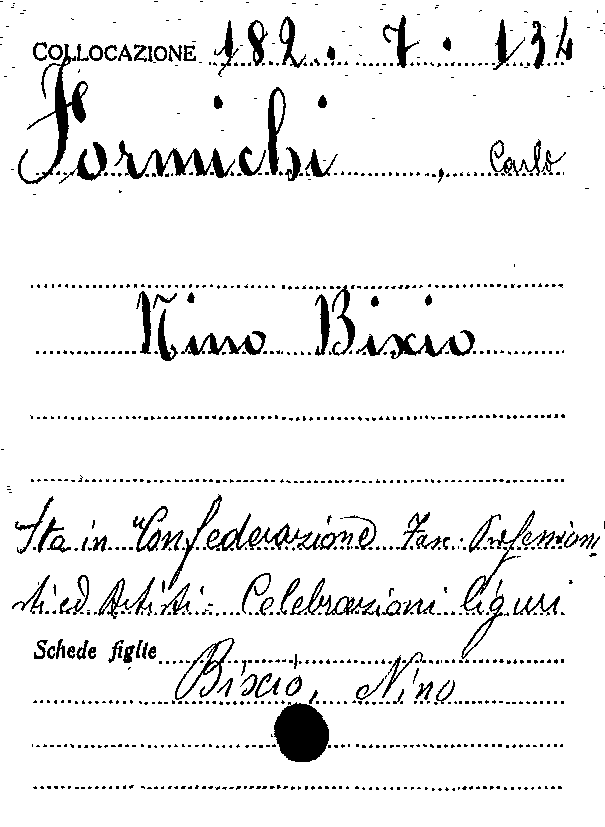 COLLOCAZIONE 182 . 7 . 134
Formichi , Carlo
Nino Bixio
Sta in "Confederazione Fasc. Professioni
sti ed Artisti = Celebrazioni liguri
Schede figlie
Bixio, Nino